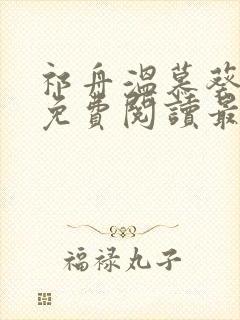 祁舟溫慕葵
免費閱讀最
福禄丸子